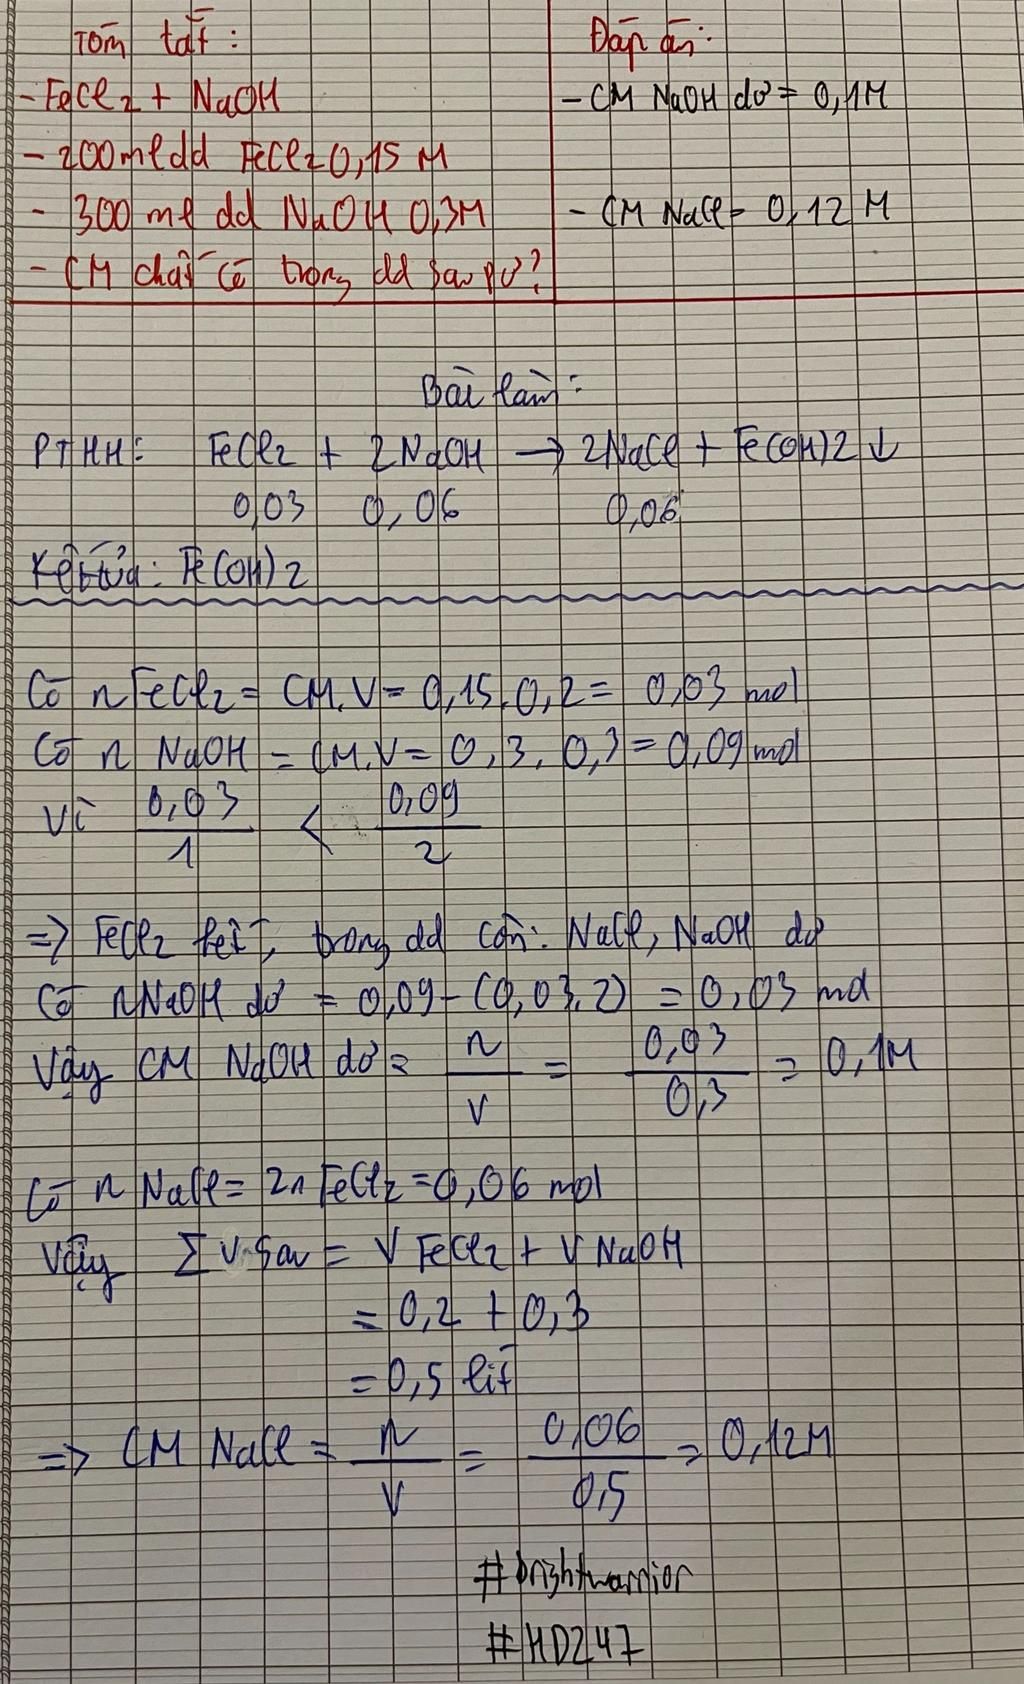 Tóm tắt:
- FeCl2 + NaOH
- 200ml dd FeCl2 0,15 M
- 300 ml dd NaOH 0,3M
- CM chất có trong dd sau pứ?
Đáp án:
- CM NaOH dư = 0,1M
- CM NaCl = 0,12 M
Bài làm:
PTHH: FeCl2 + 2NaOH → 2NaCl + Fe(OH)2 ↓
0,03 0,06 0,06
Kết tủa: Fe(OH)2
Có nFeCl2 = CM.V = 0,15.0,2 = 0,03 mol
Có n NaOH = CM.V = 0,3.0,3 = 0,09 mol
Vì 0,03/1 < 0,09/2
=> FeCl2 hết, trong dd còn: NaCl, NaOH dư
Có nNaOH dư = 0,09 - (0,03.2) = 0,03 mol
Vậy CM NaOH dư = n/V = 0,03/0,3 = 0,1M
Có n NaCl = 2nFeCl2 = 0,06 mol
Vậy Σ V sau = V FeCl2 + V NaOH
= 0,2 + 0,3
= 0,5 lít
=> CM NaCl = n/V = 0,06/0,5 = 0,12M
#brightwarrior
#HD247